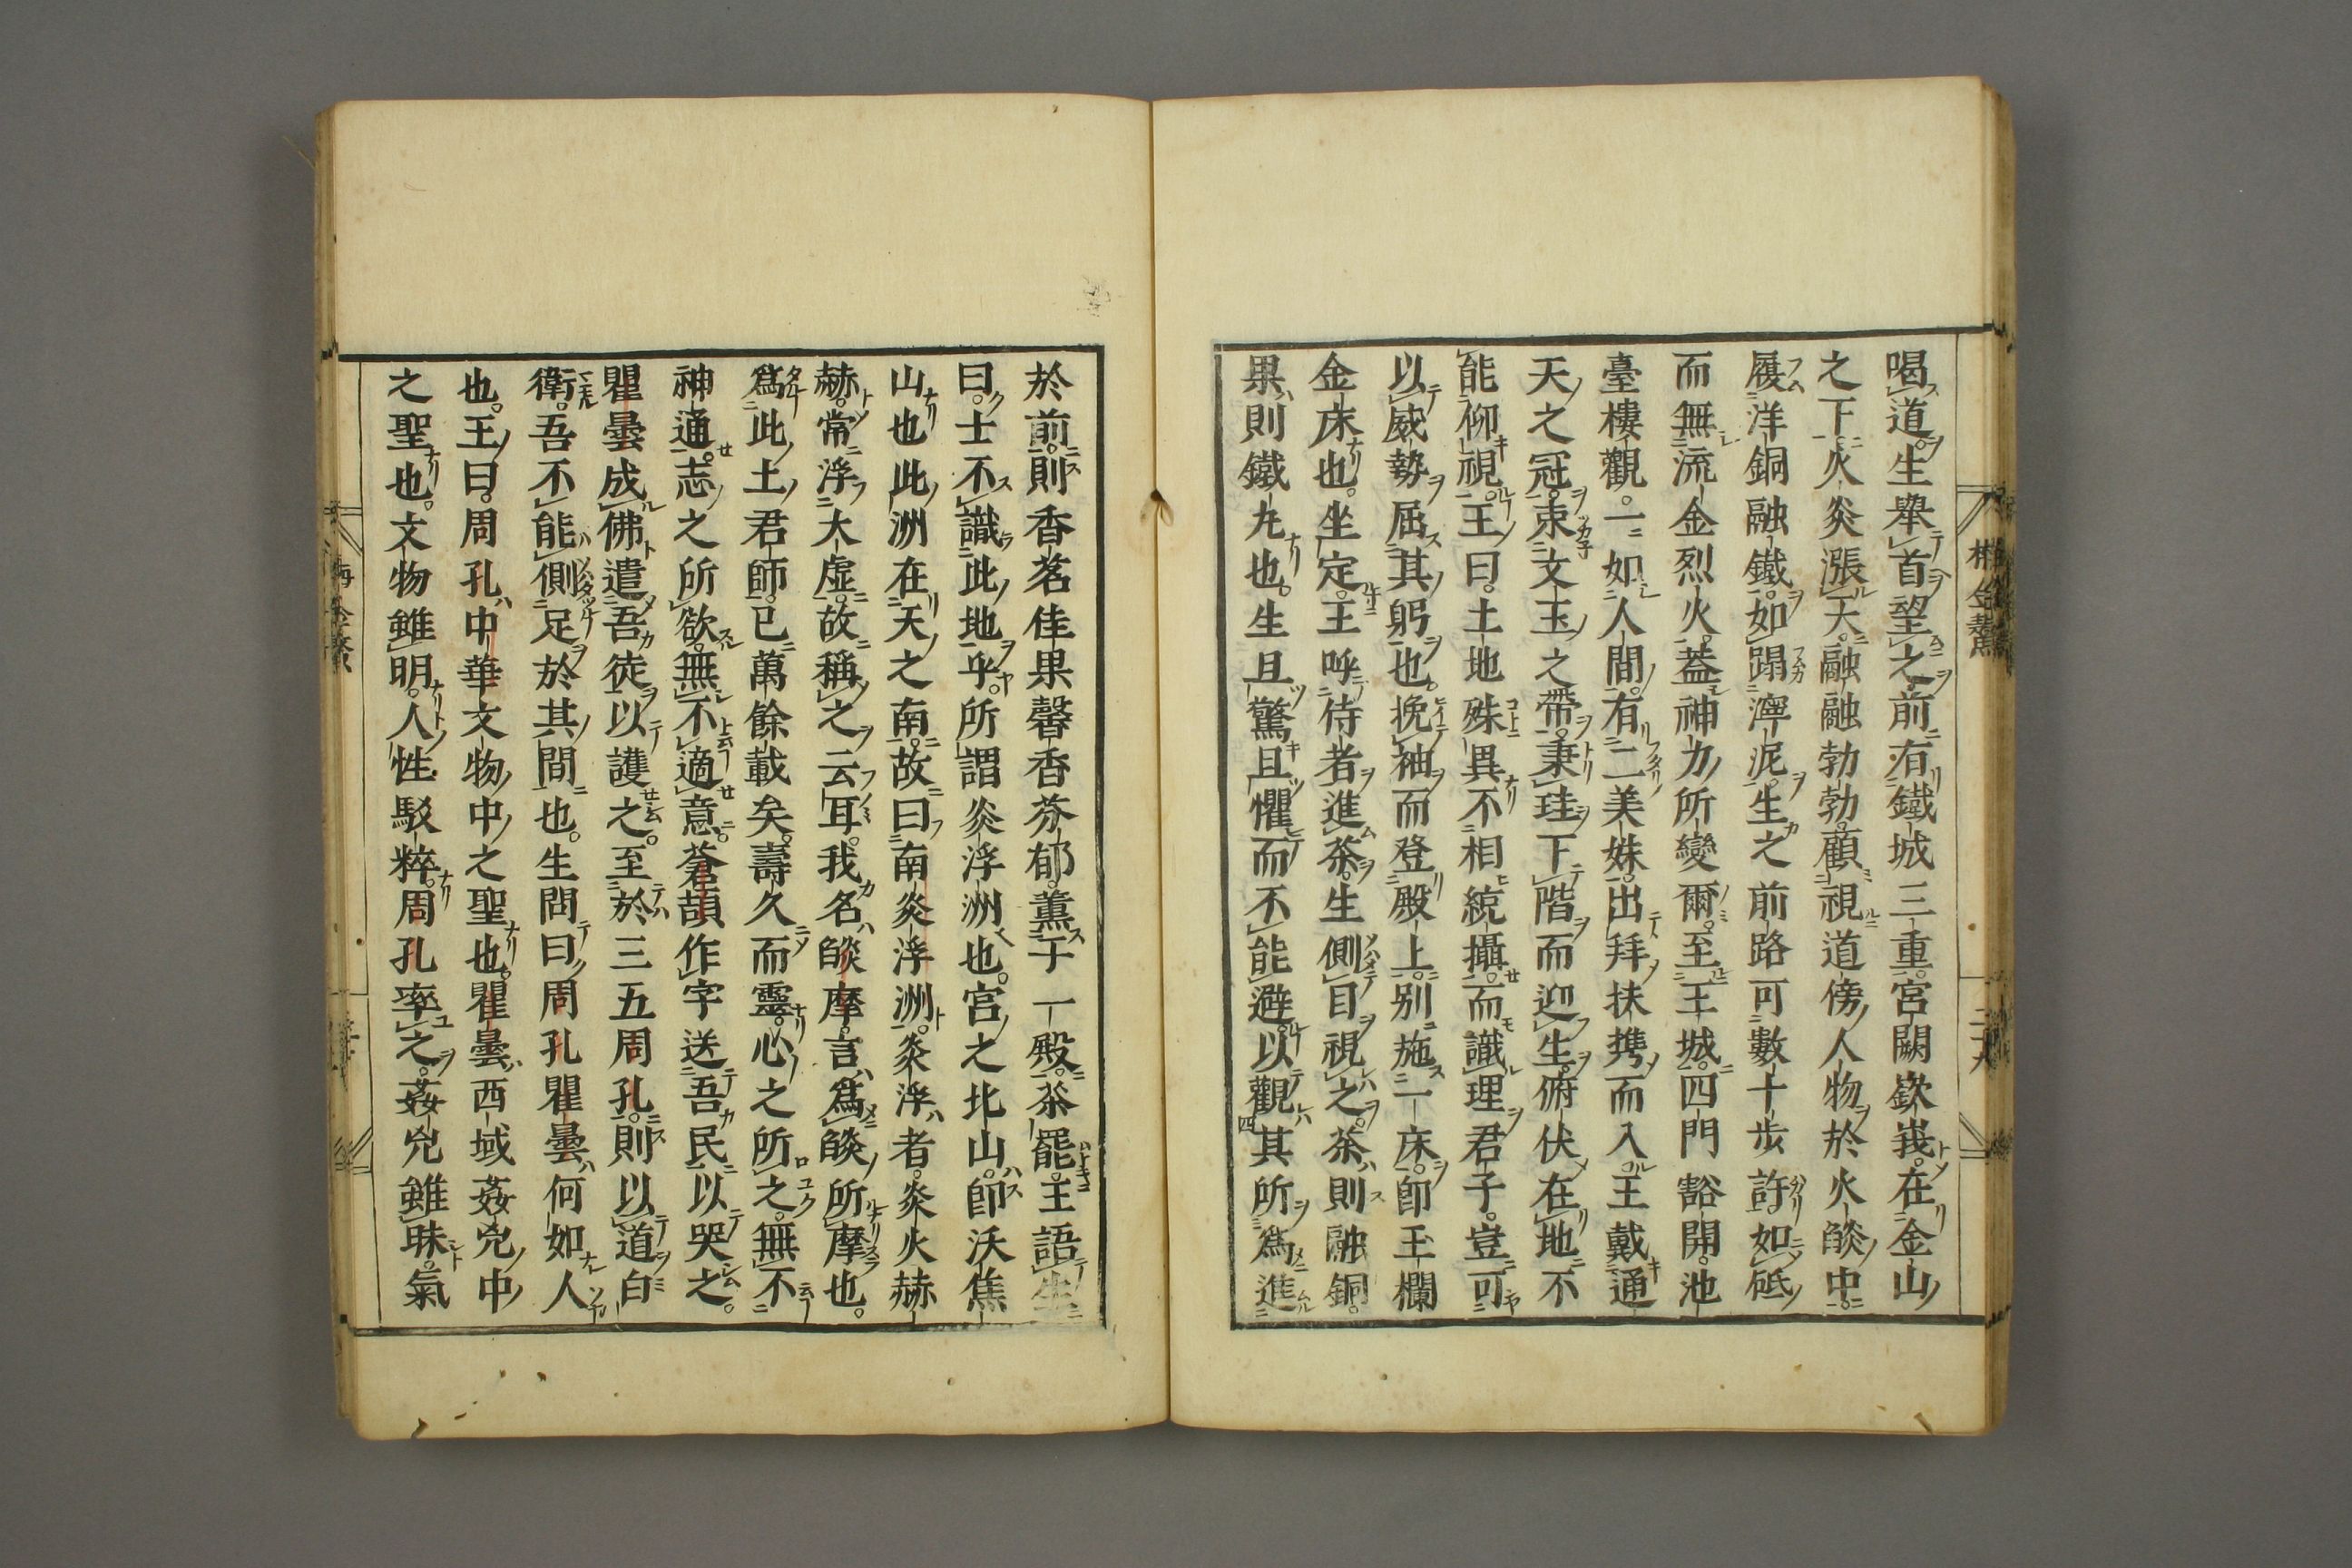 喝道。生擧首望之。前有鐵城三重。宮闕嶔峩。在金山
之下。火炎漲天。融融勃勃。顧視道傍人物於火燄中。
履洋銅融鐵。如蹋濘泥。生之前路可數十步許。如砥
而無流金烈火。蓋神力所變爾。至王城。四門豁開。池
臺樓觀。一如人間。有二美姝。出拜扶携而入。王戴通
天之冠。束文玉之帶。秉珪下階而迎生。俯伏在地不
能仰視。王曰。土地殊異不相統攝。而識理君子。豈可
以威勢屈其躬也。挽袖而登殿上。別施一床。卽玉欄
金床也。坐定。王呼侍者進茶。生側目視之。茶則融銅。
果則鐵丸也。生且驚且懼而不能避。以觀其所爲。進
於前。則香茗佳果馨香芬郁。薰于一殿。茶罷。王語生
曰。士不識此地乎。所謂炎浮洲也。宮之北山。卽沃焦
山也此洲在天之南。故曰南炎浮洲。炎浮者。炎火赫
赫。常浮大虛。故稱之云耳。我名燄摩。言爲燄所摩也。
爲此土君師。已萬餘載矣。壽久而靈。心之所之。無不
神通。志之所欲。無不適意。蒼頡作字送吾民以哭之。
瞿曇成佛遣吾徒以護之。至於三五周孔。則以道自
衛。吾不能側足於其間也。生問曰。周孔瞿曇何如人
也。王曰。周孔中華文物中之聖也。瞿曇西域姦兇中
之聖也。文物雖明。人性駁粹。周孔率之。姦兇雖昧。氣
二十八